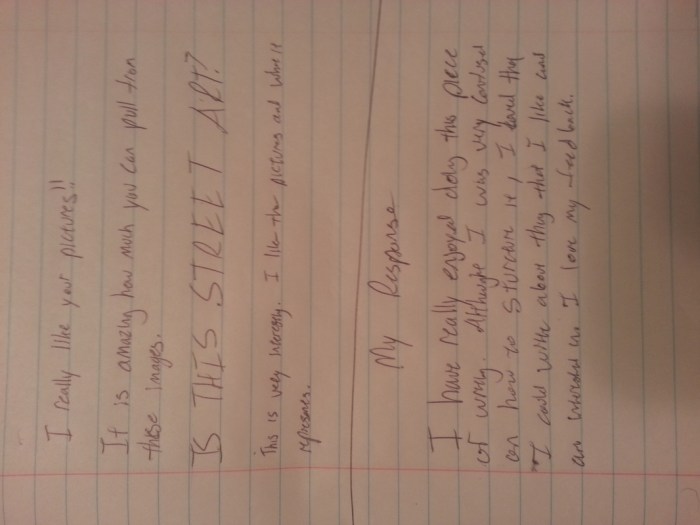 I really like your pictures!!
It is amazing how much you can pull from
these images.
IS THIS STREET ART?
This is very interesting. I like the pictures and what it
represents.
My Response
I have really enjoyed doing this piece
of writing. Although I was very confused
on how to structure it, I found that
I could write about things that I like and
am interested in. I love my feedback.